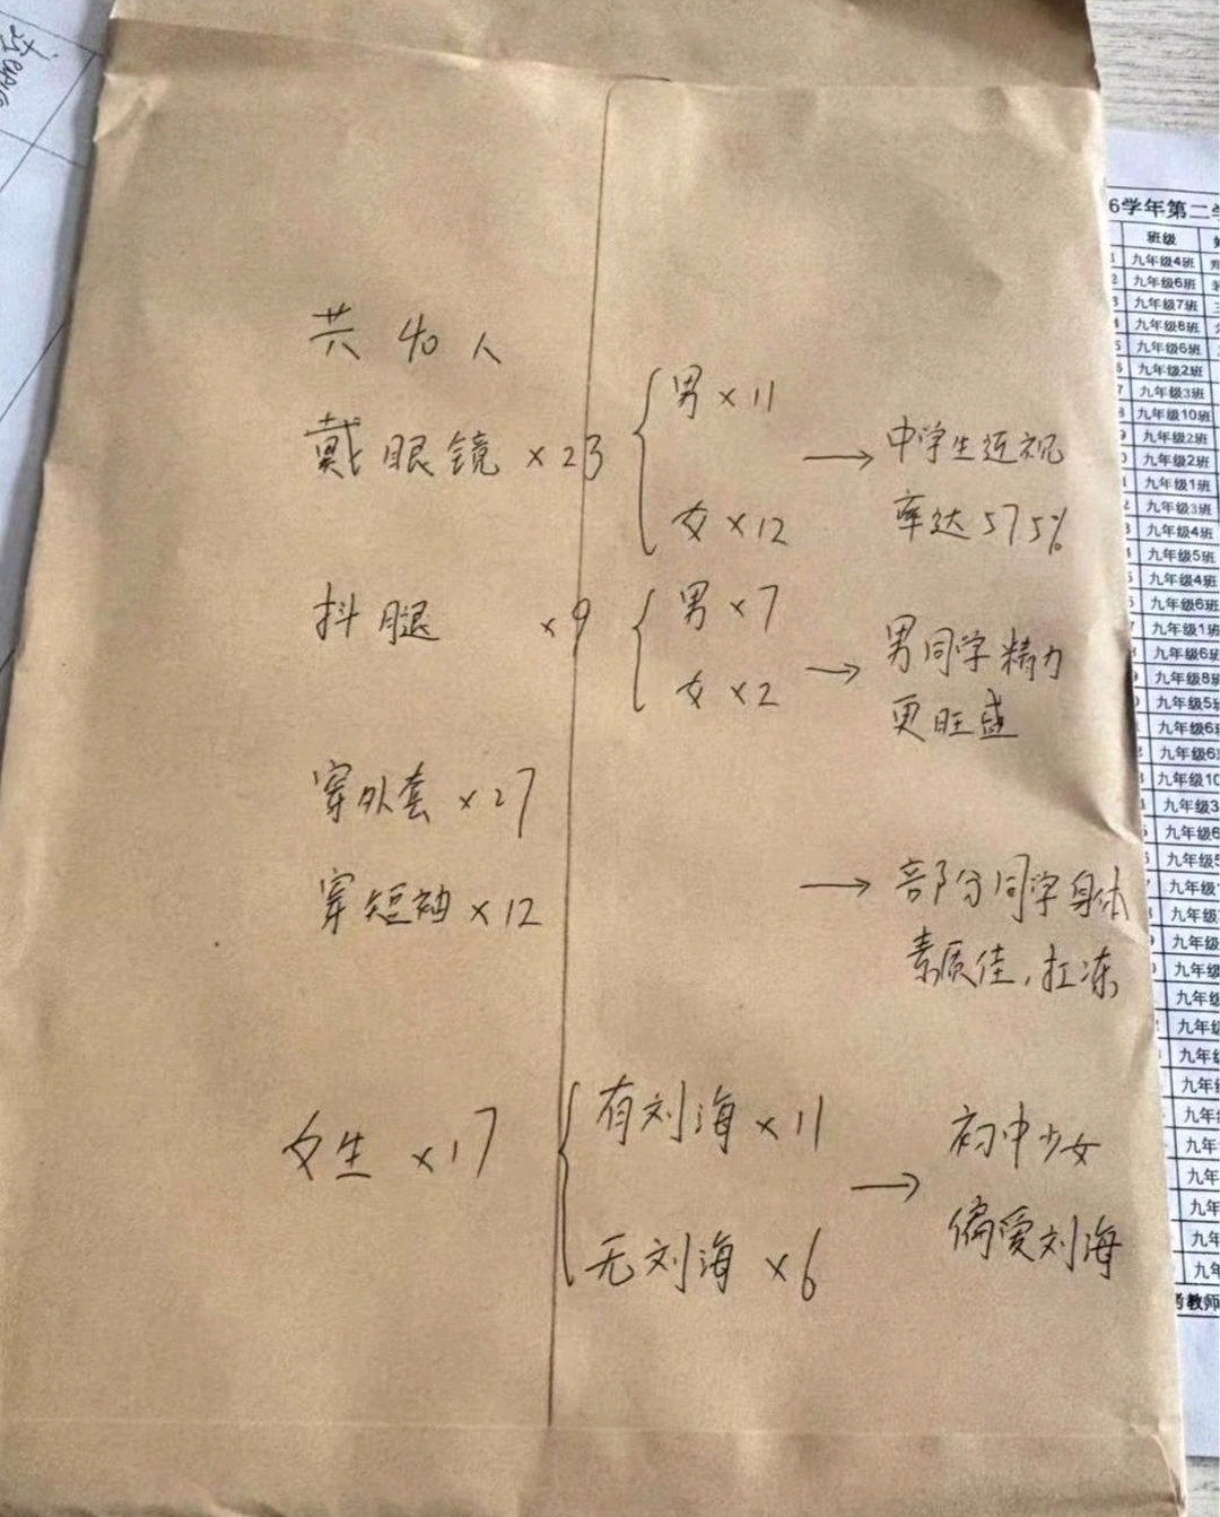 共 40 人
戴眼镜 ×23
男 × 11
女 × 12
→ 中学生近视
率达 57.5%
抖腿 ×9
男 × 7
女 × 2
→ 男同学精力
更旺盛
穿外套 ×27
穿短袖 ×12
→ 部分同学身体
素质佳，扛冻
女生 ×17
有刘海 × 11
无刘海 ×6
→ 初中少女
偏爱刘海
6学年第二学
班级
九年级4班
九年级6班
九年级7班
九年级8班
九年级6班
九年级2班
九年级3班
九年级10班
九年级2班
九年级2班
九年级1班
九年级3班
九年级4班
九年级5班
九年级4班
九年级6班
九年级1班
九年级6班
九年级8班
九年级5班
九年级6班
九年级6
九年级10
九年级3
九年级6
九年级5
九年级
九年级
九年级
九年级
九年级
九年级
九年级
九年级
九年级
九年
九年
九年
九年
九年
考教师